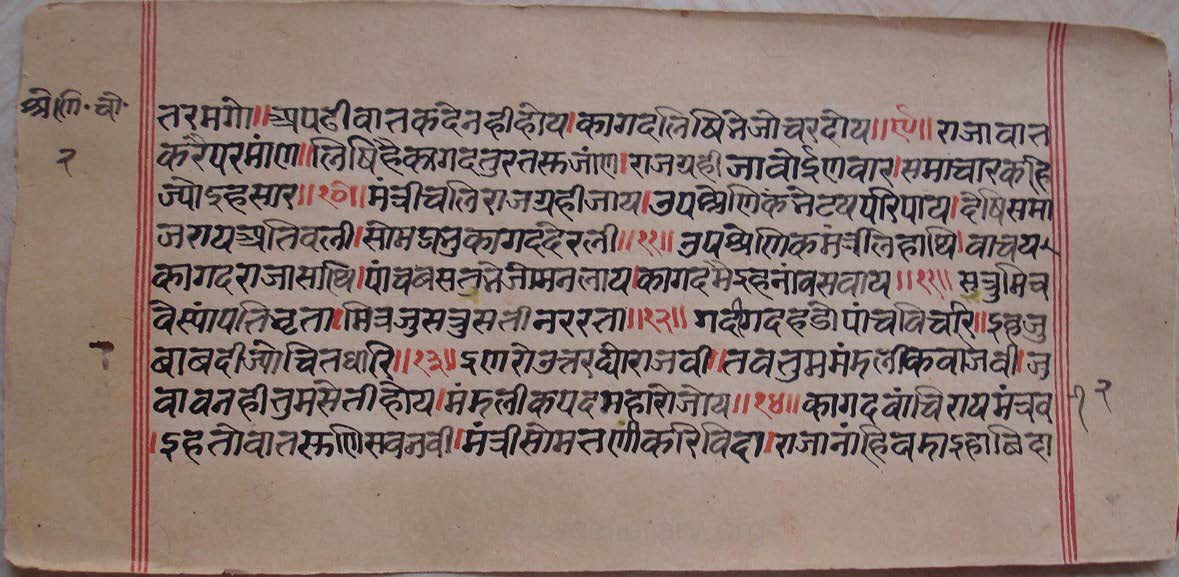 श्रेणि. चो.
२
तरमगो॥अपढीवातकंदेनहीहोय।कागदलिषिनेजोचरदोय॥९॥राजावात
करैपरमांण॥लिषिहैकागदतुरतसुजांण।राजग्रहीजावोइणवार।समाचारकहि
ज्योइहसार॥१०॥मंत्रीचलिराजग्रहीजाय।नृपश्रेणिकनेटयपरिपाय।देषिसमा
जरायअतिवली।सोमद्यनुकागददेरली॥११॥नृपश्रेणिकमंत्रीलिहाथि।वाचय
कागदराजासाथि।पांचबसतनेजोमनलाय।कागदमैइहनांवसवाय॥१२॥सत्रुमित्र
वेस्यांपतिवृता।मित्रजुसत्रुसतीनररता॥१२॥गर्दगदहडोपांचविचारि॥इहजु
बाबदीज्योचितधारि॥१३॥इणरोउत्तरद्योराजवी।तवतुममंडलीकवाजवी।जु
वावनहीतुमसेतीहोय।मंडलीकपदमहारोजोय॥१४॥कागदवांचिरायमंत्रव
।इहतोवातसुणिसवनवी।मंत्रीसोमतणीकरिविदा।राजानांहि
२